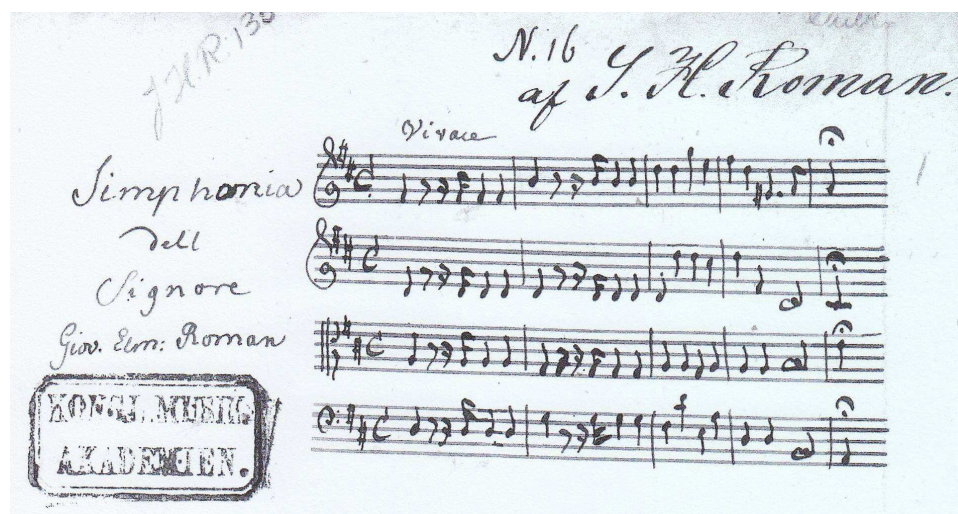 J H R: 130
N. 16
af J. H. Roman.
Vivace
Simphonia
dell
Signore
Giov. Elm: Roman
KONGL. MUSIK.
AKADEMIEN.